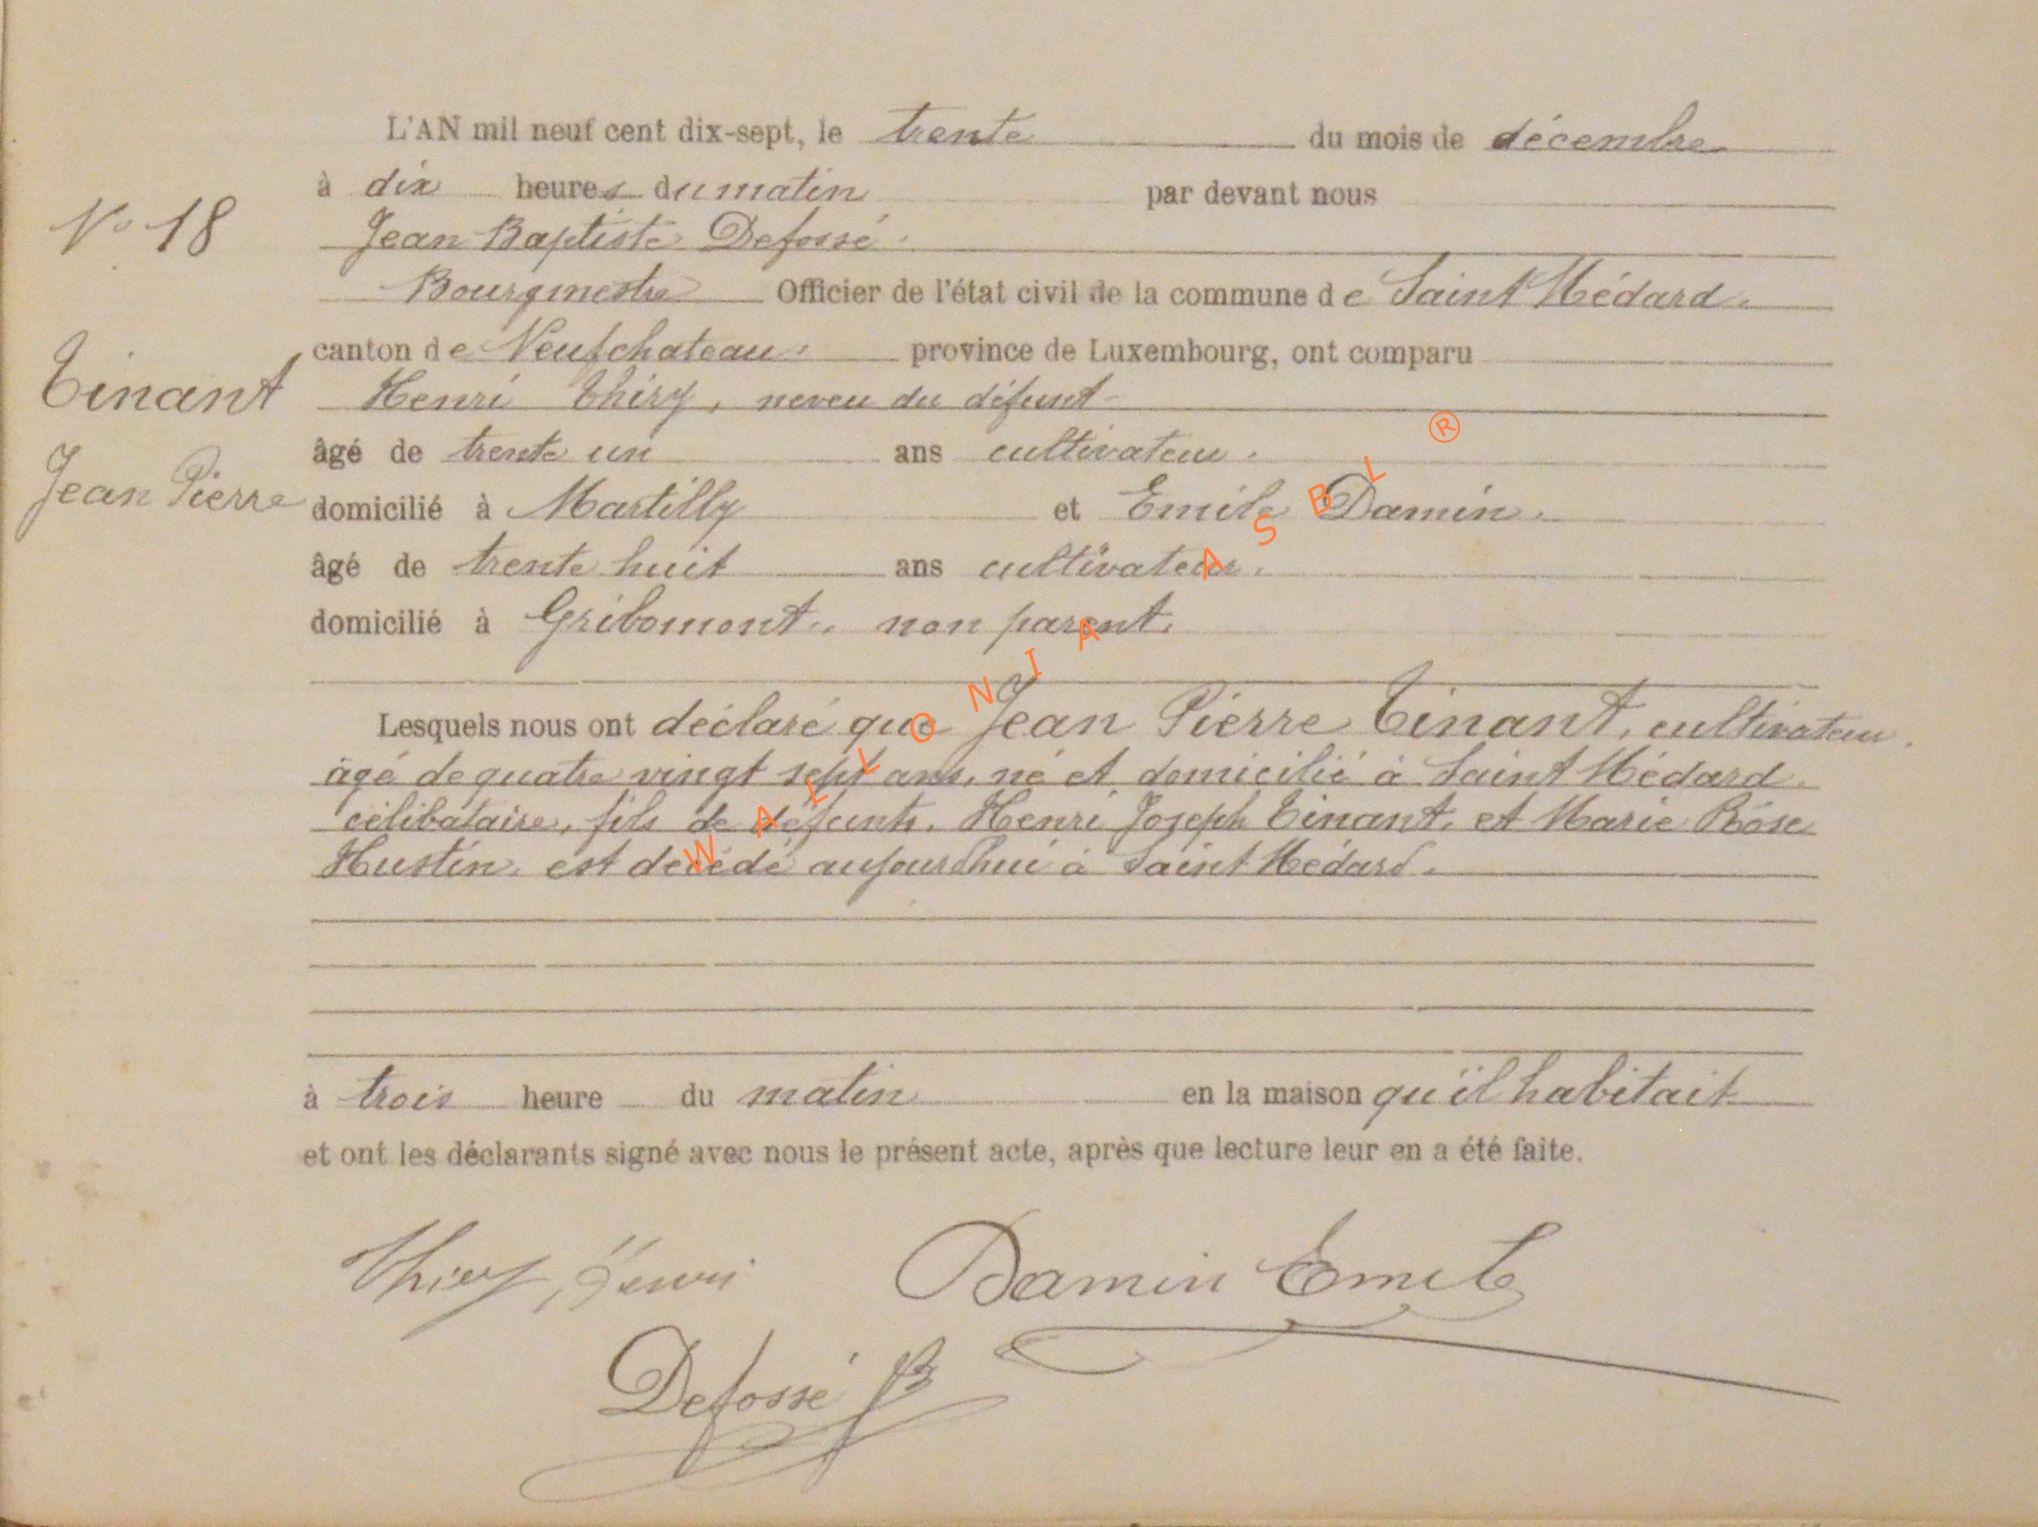 L'AN mil neuf cent dix-sept, le trente du mois de décembre
à dix heures du matin par devant nous
N° 18
Jean Baptiste Defossé
Bourgmestre Officier de l'état civil de la commune de Saint Médard.
canton de Neufchateau. province de Luxembourg, ont comparu
Tinant
Jean Pierre
Henri Thiry, neveu du défunt
âgé de trente un ans cultivateur.
domicilié à Martilly et Emile Damin.
âgé de trente huit ans cultivateur.
domicilié à Gribomont. non parent.
Lesquels nous ont déclaré que Jean Pierre Tinant, cultivateur.
âgé de quatre vingt sept ans, né et domicilié à Saint Médard.
célibataire, fils de défunts. Henri Joseph Tinant, et Marie Rose
Hustin. est décédé aujourdhui à Saint Médard.
à trois heure du matin en la maison qu'il habitait
et ont les déclarants signé avec nous le présent acte, après que lecture leur en a été faite.
Thiry, Henri Damin Emile
Defossé JB
WALLONIA ASBL ®